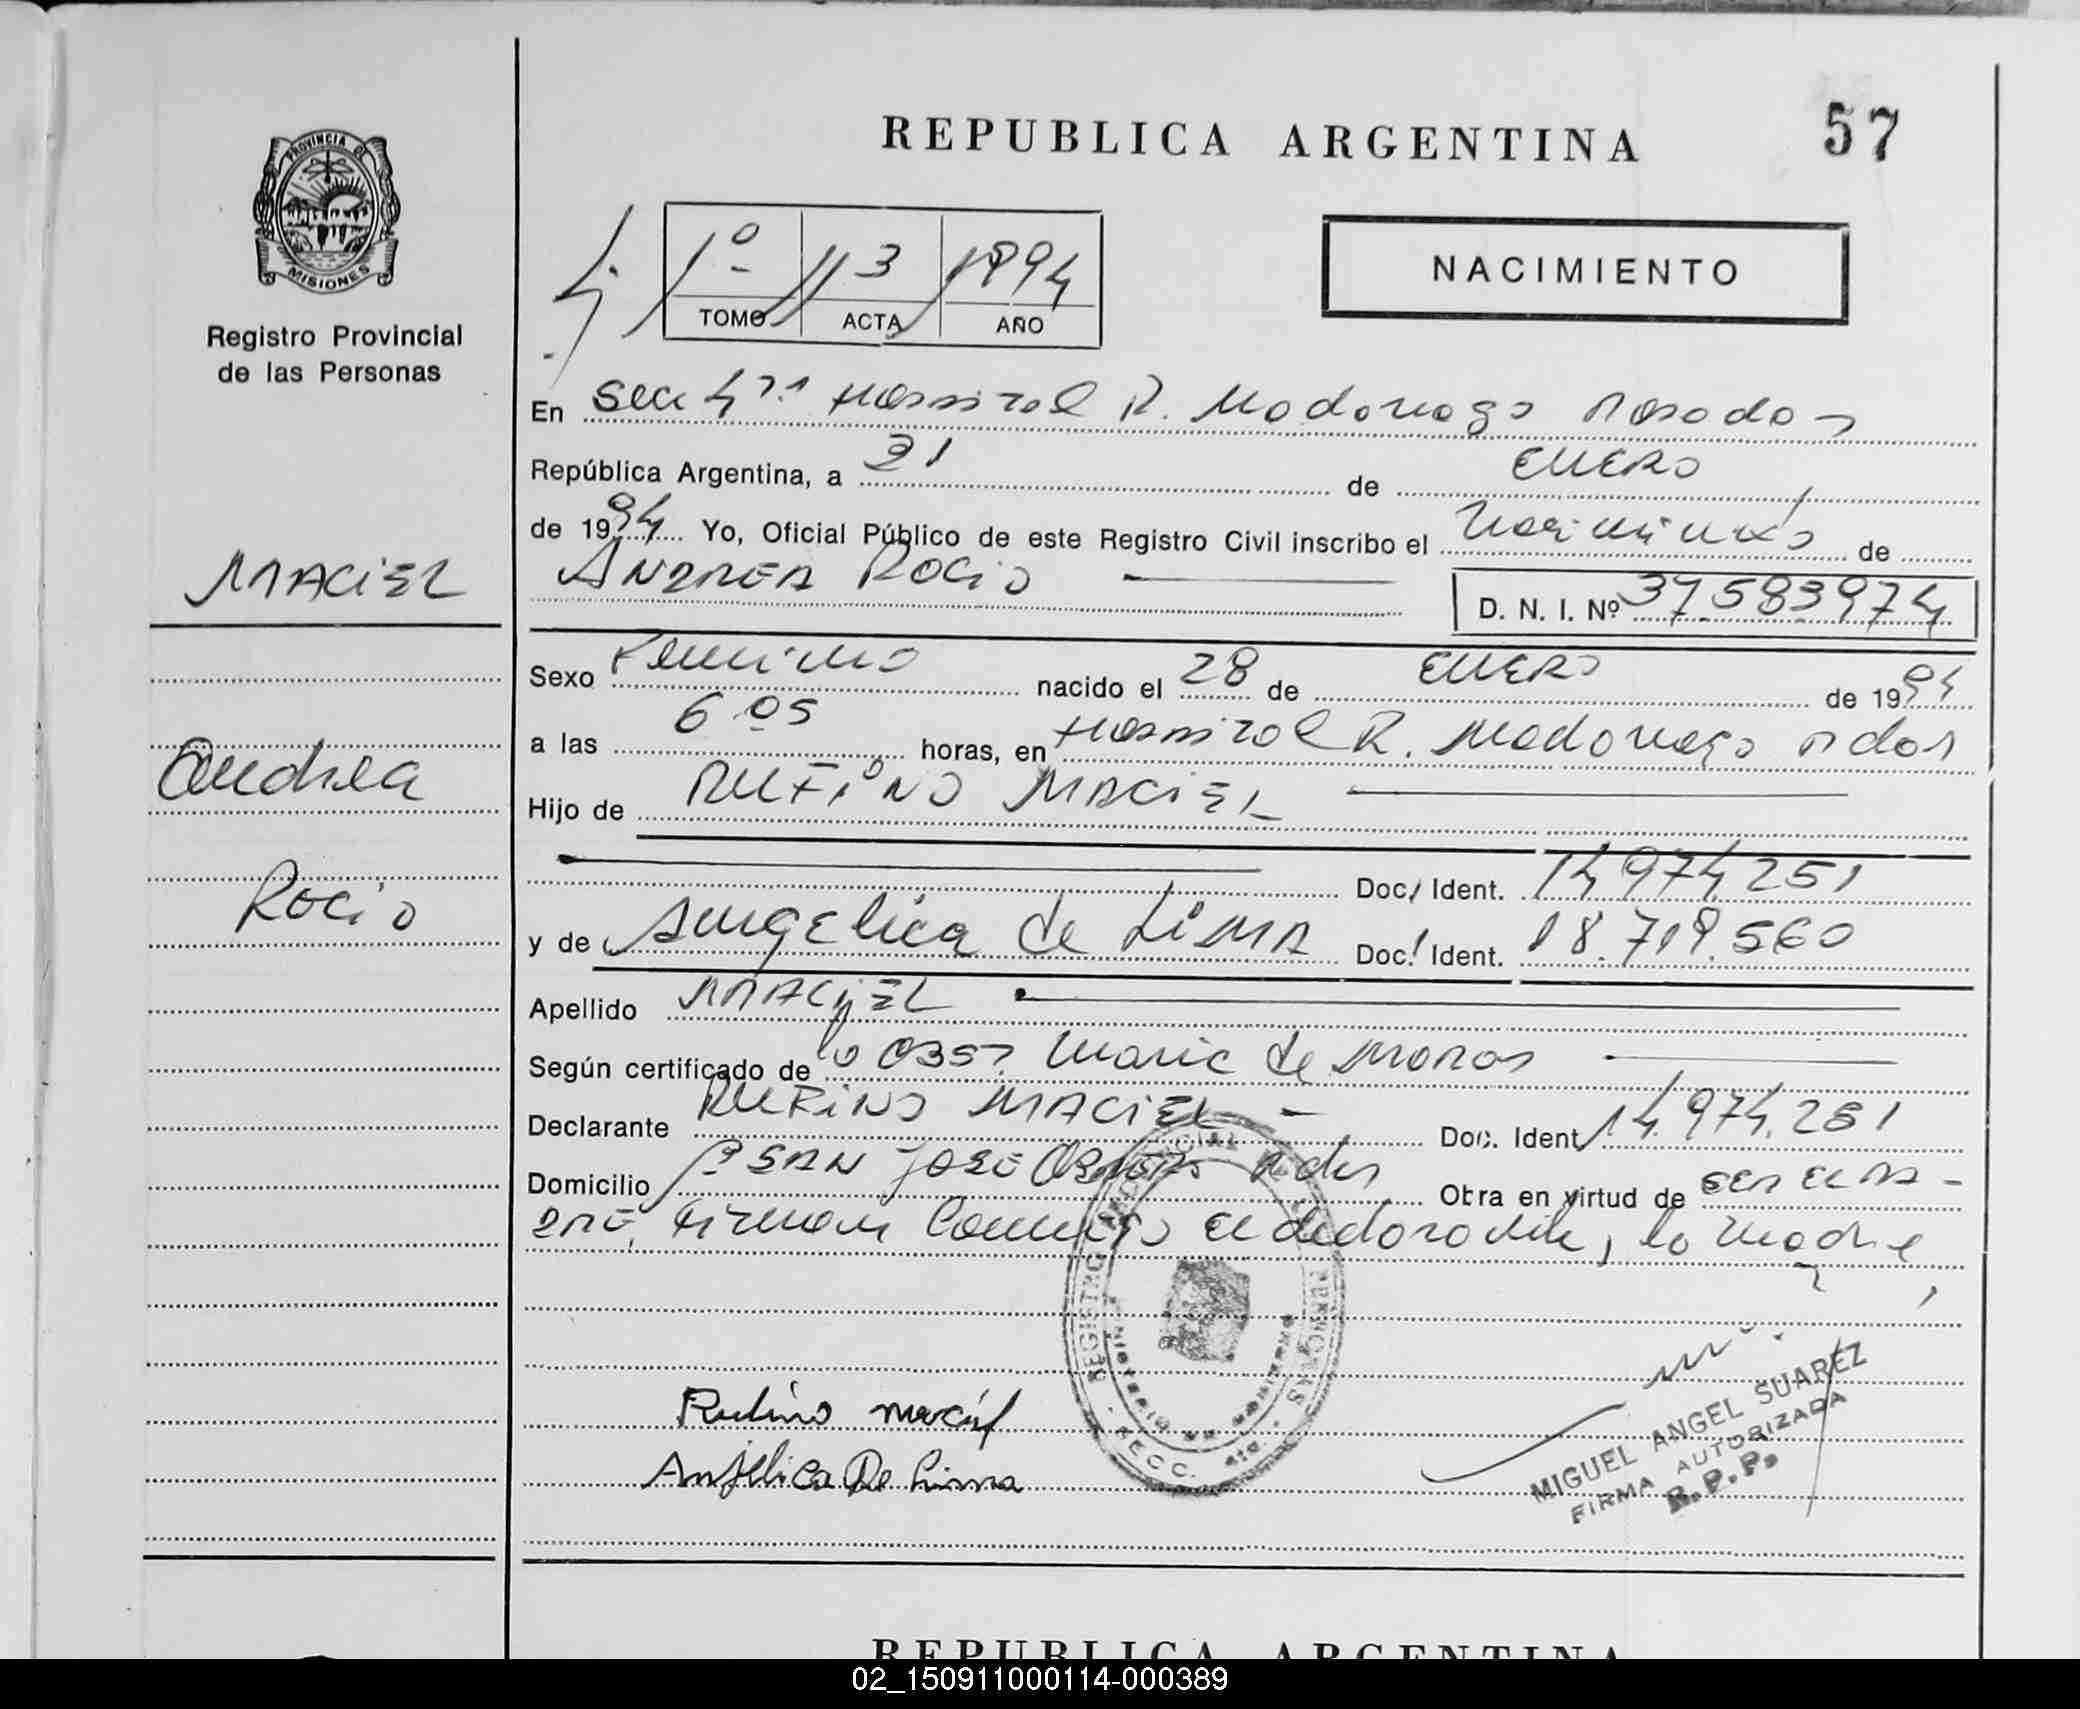 REPUBLICA ARGENTINA
57
PROVINCIA DE
MISIONES
Registro Provincial
de las Personas
1º 113 1994
TOMO ACTA AÑO
NACIMIENTO
En Secc 4ta Hospital R. Madariaga Posadas
República Argentina, a 31 de ENERO
de 1994 Yo, Oficial Público de este Registro Civil inscribo el Nacimiento de
ANDREA ROCIO
D. N. I. Nº 37583974
MACIEL
Andrea
Rocio
Sexo Femenino nacido el 28 de ENERO de 1994
a las 6 05 horas, en Hospital R. Madariaga Pdas
Hijo de RUFINO MACIEL
Doc. Ident. 14.974.251
y de Angelica de LiMA Doc. Ident. 18.719.560
Apellido MACIEL
Según certificado de la Obst. Maria de Moras
Declarante RUFINO MACIEL Doc. Ident. 14.974.251
Domicilio Bº SAN JOSE Pdas Obra en virtud de SER EL PA-
DRE, Firman Conmigo el declarante, la madre,
Rufino maciel
Anjelica De Lima
REGISTRO PROVINCIAL DE LAS PERSONAS
SECC. 4ta.
MINISTERIO DE GOBIERNO
MIGUEL ANGEL SUAREZ
FIRMA AUTORIZADA
R.P.P.
REPUBLICA ARGENTINA
02_150911000114-000389